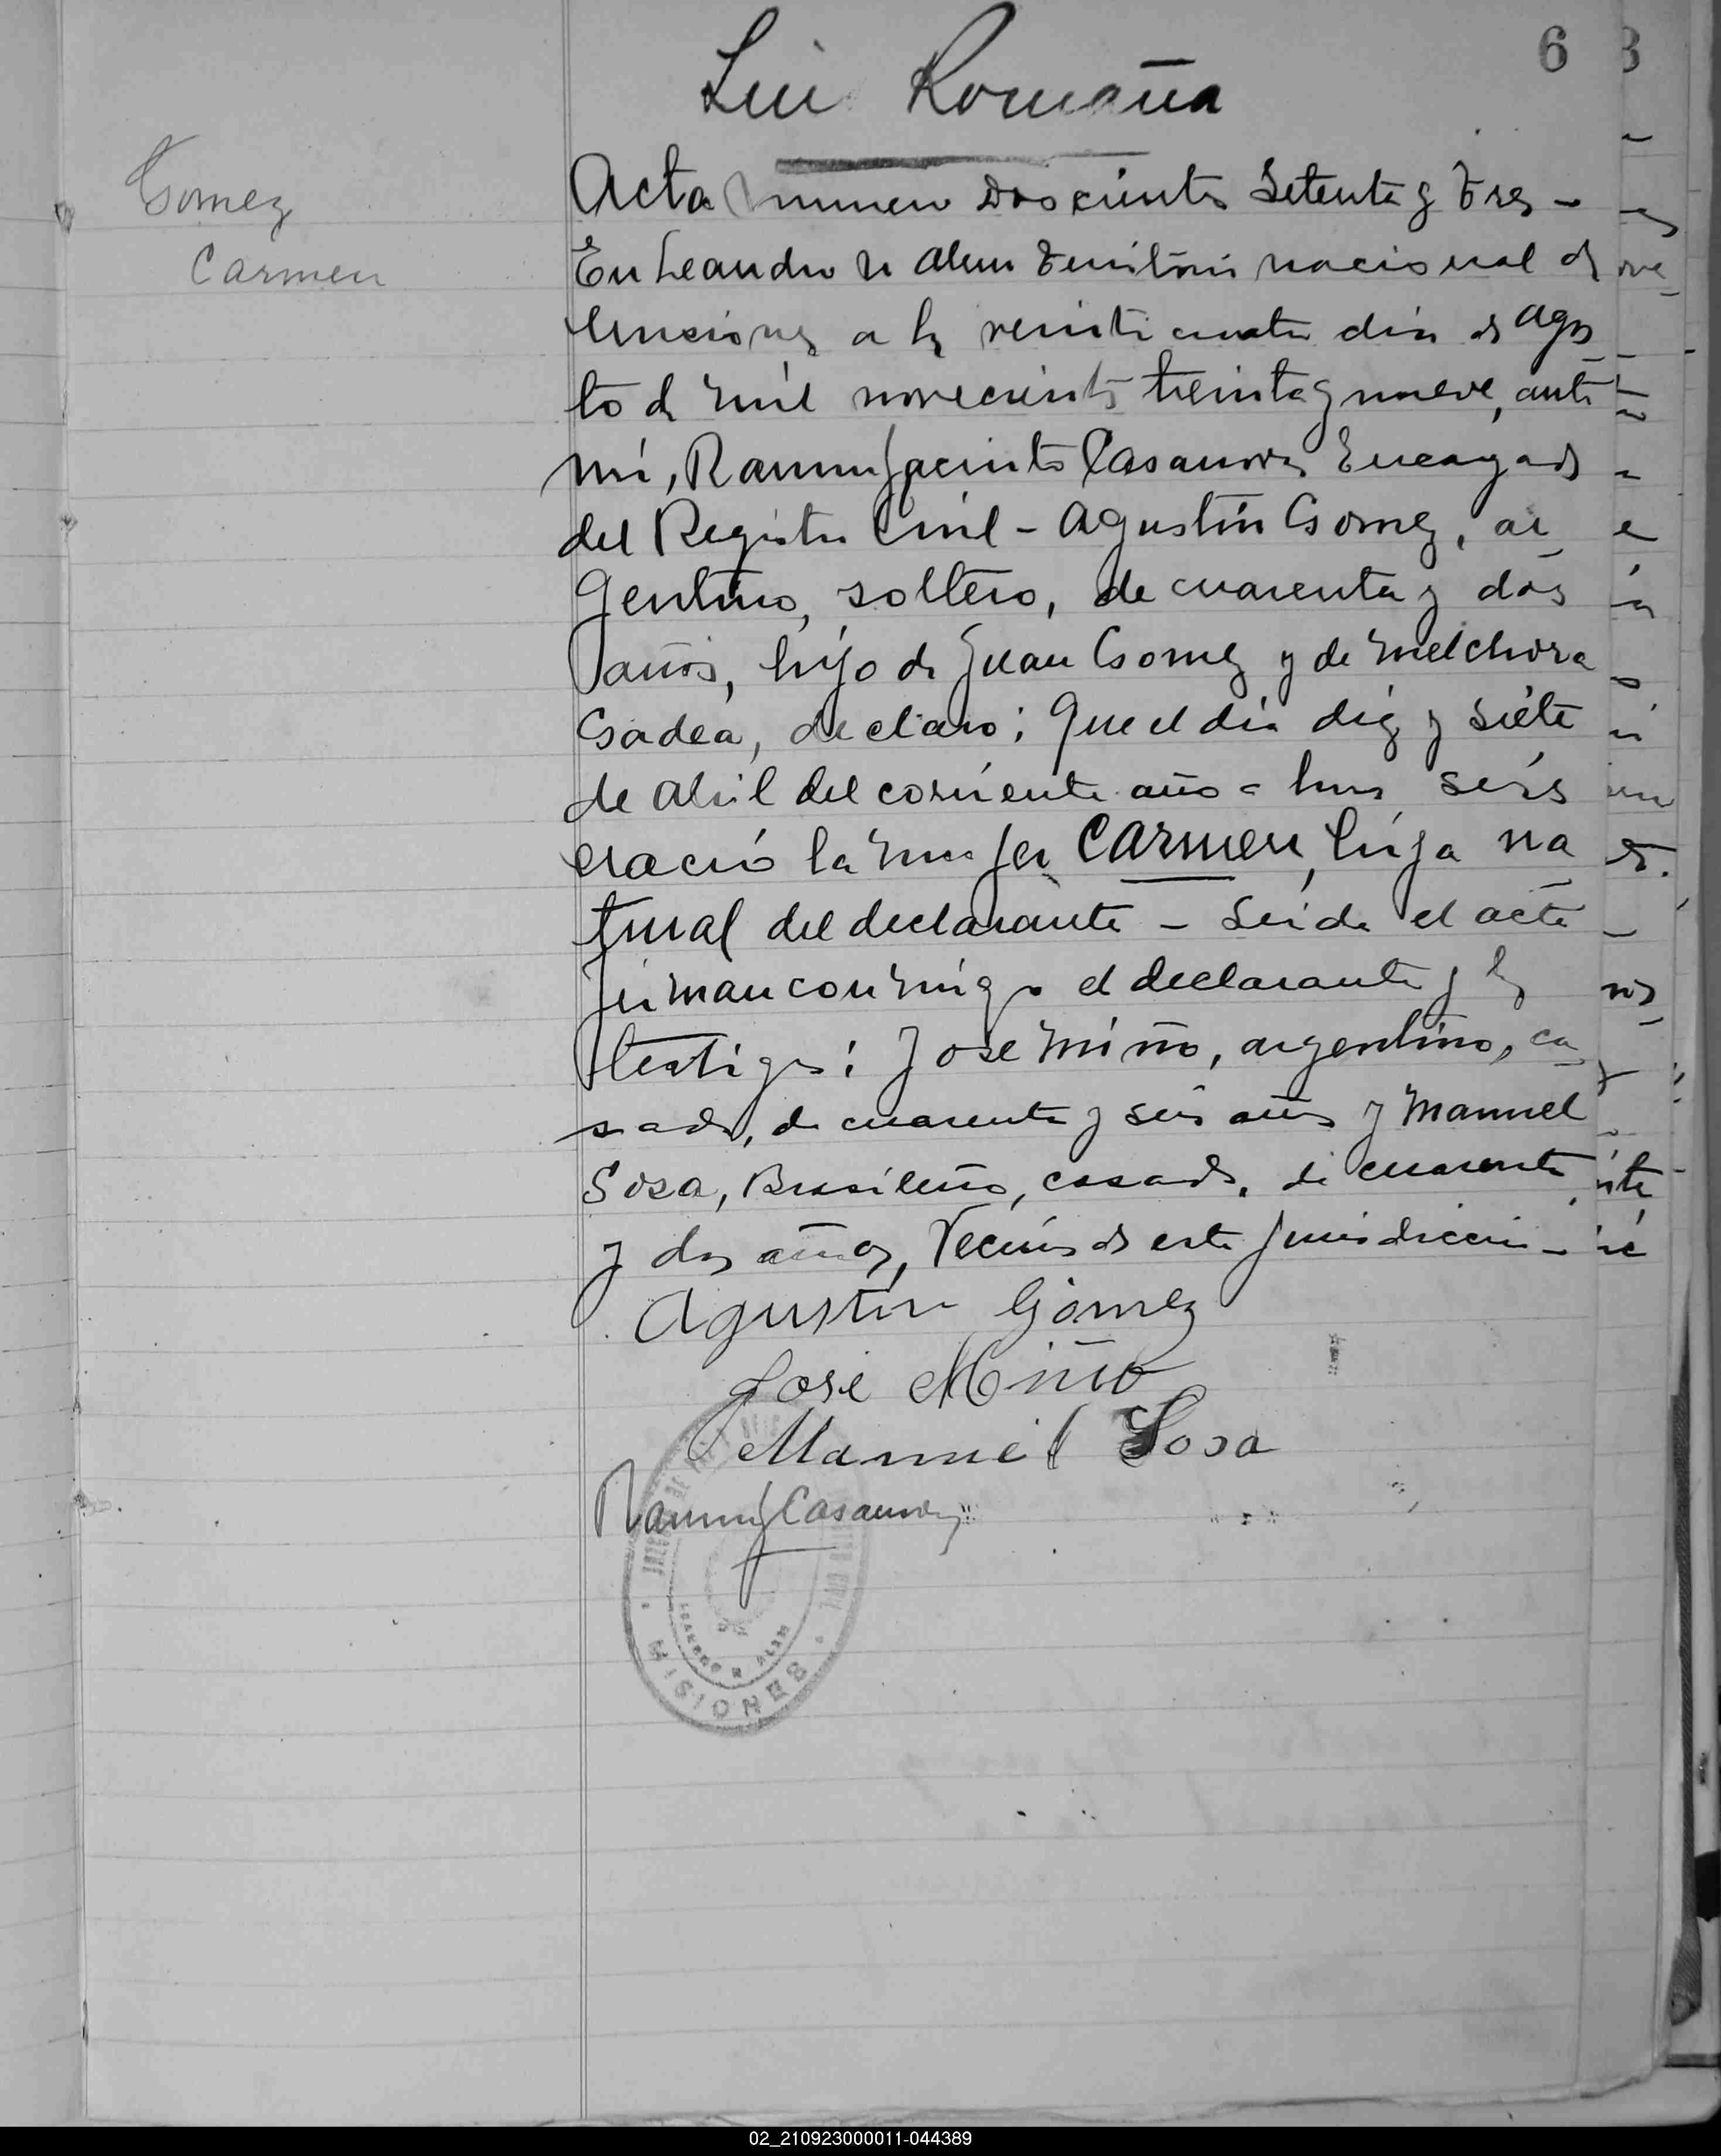 6 3
Luis Romaña
Gomez
Carmen
Acta numero Doscientos Setenta y Tres -
En Leandro N Alem Territorio nacional de
Misiones a los veinticuatro dias de Agos
to de mil novecientos treinta y nueve, ante
mi, Ramon Jacinto Casanova Encargado
del Registro Civil - Agustin Gomez, ar
gentino, soltero, de cuarenta y dos
años, hijo de Juan Gomez y de Melchora
Gadea, declaro; Que el dia diez y siete
de Abril del corriente año a horas seis
nació la mujer Carmen, hija na
tural del declarante - Leida el acta
firman conmigo el declarante y los
testigos: Jose Miño, argentino, ca
sado, de cuarenta y seis años y Manuel
Sosa, Brasileño, casado, de cuarenta
y dos años, Vecinos de esta jurisdiccion -
Agustin Gómez
José Miño
Manuel Sosa
Ramon J Casanova
LEANDRO N ALEM
MISIONES
02_210923000011-044389